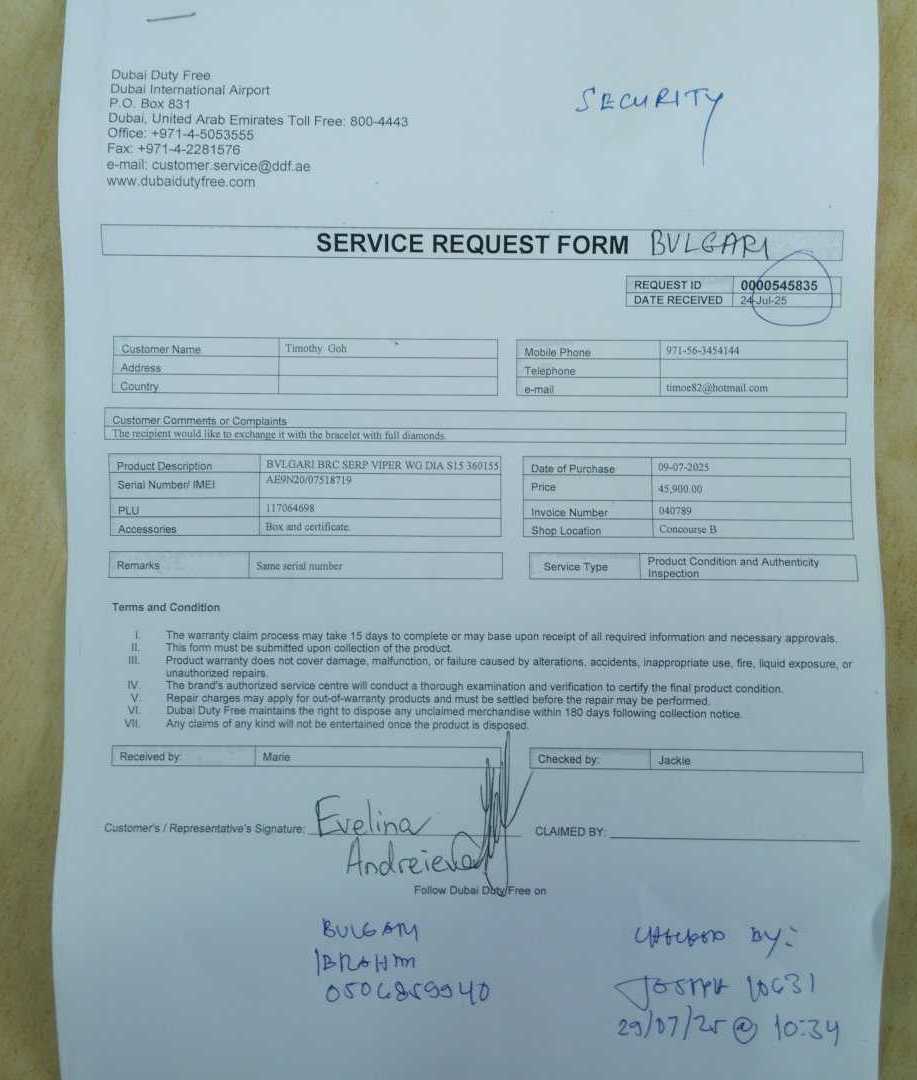 Dubai Duty Free
Dubai International Airport
P.O. Box 831
Dubai, United Arab Emirates Toll Free: 800-4443
Office: +971-4-5053555
Fax: +971-4-2281576
e-mail: customer.service@ddf.ae
www.dubaidutyfree.com
SECURITY
SERVICE REQUEST FORM BVLGARI
REQUEST ID 0000545835
DATE RECEIVED 24-Jul-25
Customer Name Timothy Goh
Address
Country
Mobile Phone 971-56-3454144
Telephone
e-mail timoe82@hotmail.com
Customer Comments or Complaints
The recipient would like to exchange it with the bracelet with full diamonds.
Product Description BVLGARI BRC SERP VIPER WG DIA S15 360155
Serial Number/ IMEI AE9N20/07518719
PLU 117064698
Accessories Box and certificate.
Date of Purchase 09-07-2025
Price 45,900.00
Invoice Number 040789
Shop Location Concourse B
Remarks Same serial number
Service Type Product Condition and Authenticity
Inspection
Terms and Condition
I. The warranty claim process may take 15 days to complete or may base upon receipt of all required information and necessary approvals.
II. This form must be submitted upon collection of the product.
III. Product warranty does not cover damage, malfunction, or failure caused by alterations, accidents, inappropriate use, fire, liquid exposure, or
unauthorized repairs.
IV. The brand's authorized service centre will conduct a thorough examination and verification to certify the final product condition.
V. Repair charges may apply for out-of-warranty products and must be settled before the repair may be performed.
VI. Dubai Duty Free maintains the right to dispose any unclaimed merchandise within 180 days following collection notice.
VII. Any claims of any kind will not be entertained once the product is disposed.
Received by: Marie
Checked by: Jackie
Customer's / Representative's Signature: Evelina
Andreieva
CLAIMED BY:
Follow Dubai Duty Free on
BULGARI
IBRAHIM
0506859940
CHECKED BY:
JOSEPH 10631
29/07/25 @ 10:34